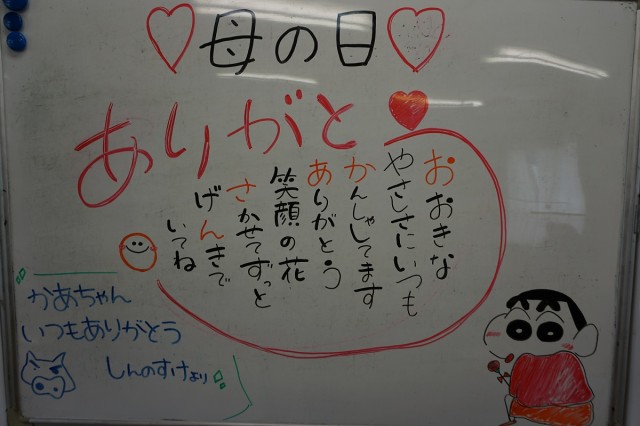 母の日
ありがと
おおきな
やさしさにいつも
かんしゃしてます
ありがとう
笑顔の花
さかせてずっと
げんきで
いてね
かあちゃん
いつもありがとう
しんのすけより